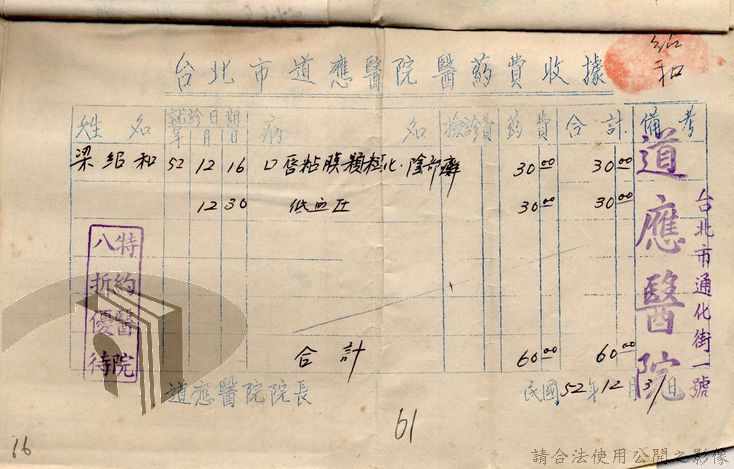 紹和
台北市道應醫院醫葯費收據
姓名 就診日期 年 月 日 病名 檢診費 葯費 合計 備考
梁紹和 52 12 16 口唇粘膜顆粒化·陰部癬 30 00 30 00
12 30 低血圧 30 00 30 00
合計 60 00 60 00
道應醫院院長 民國52年12月31日
特約醫院
八折優待
道應醫院
台北市通化街一號
16
61
請合法使用公開之影像